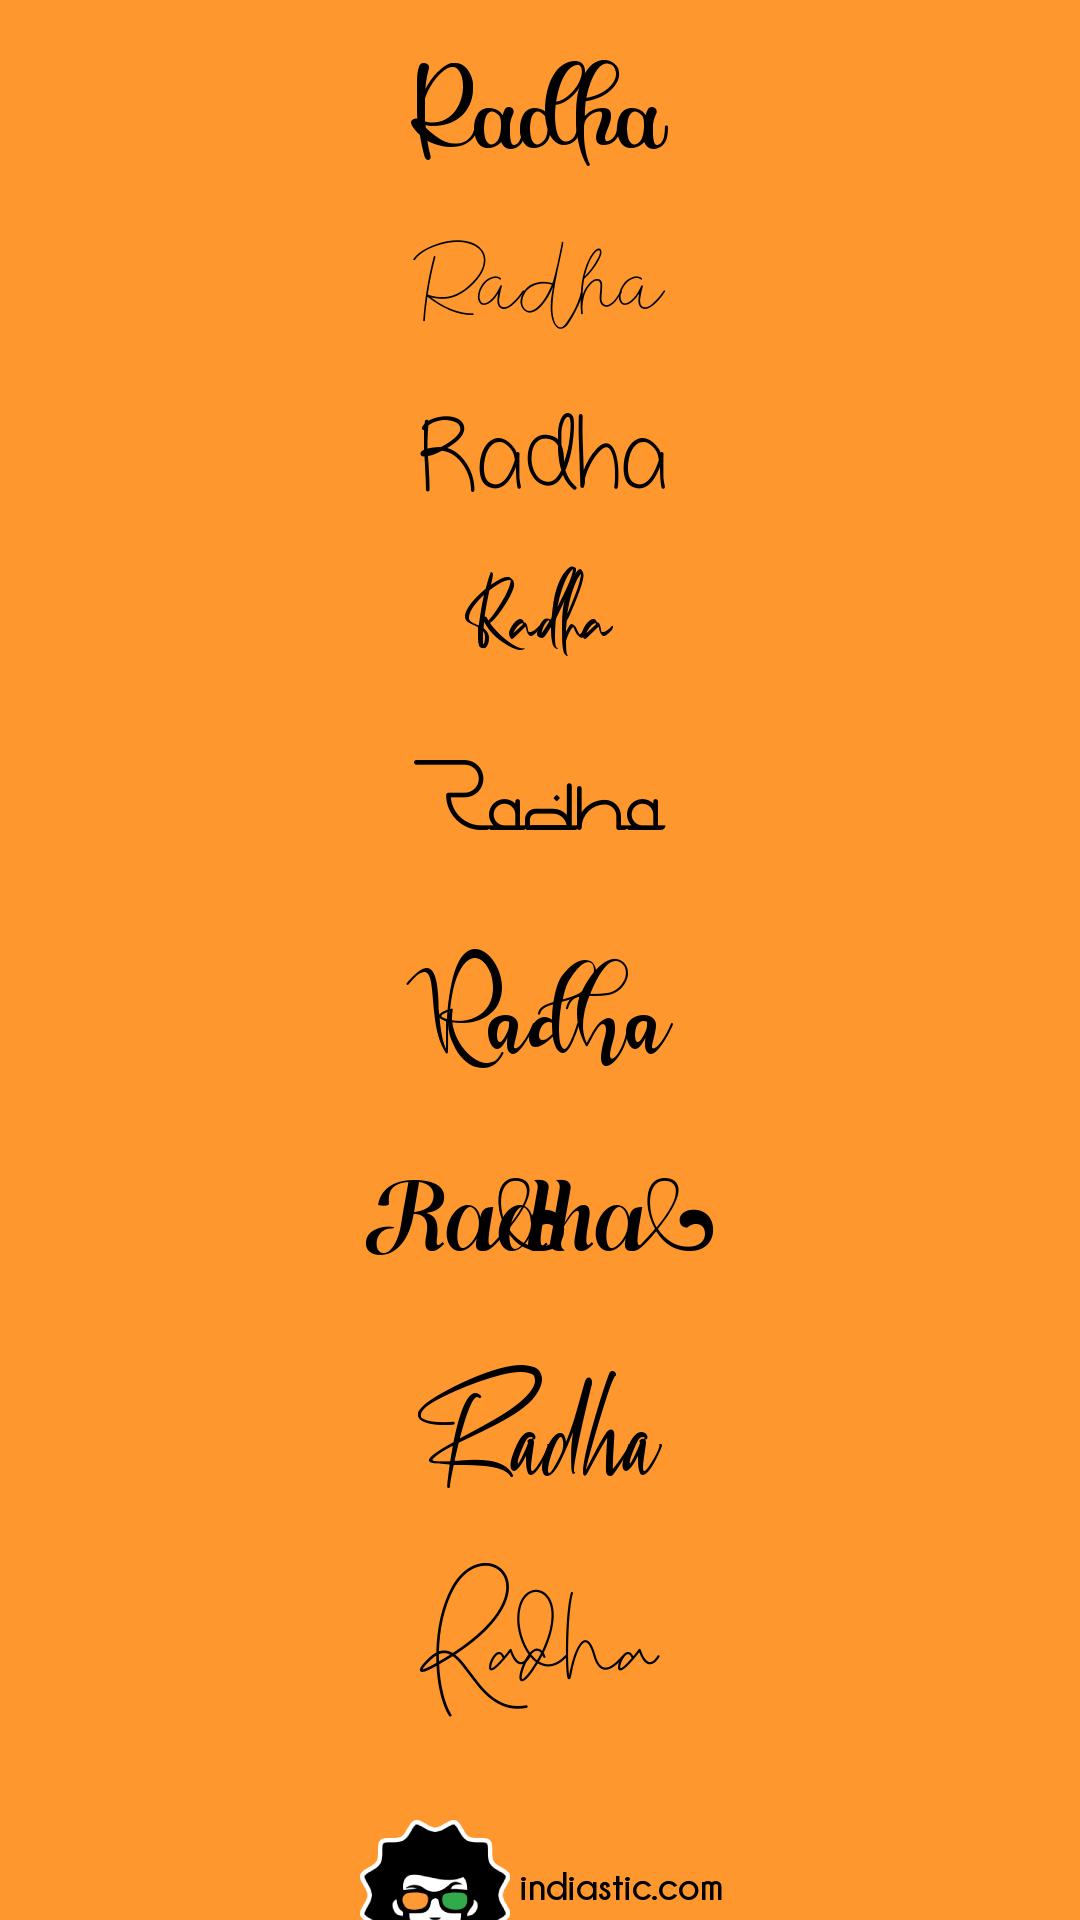 Radha
Radha
Radha
Radha
Radha
Radha
Radha
Radha
Radha
indiastic.com